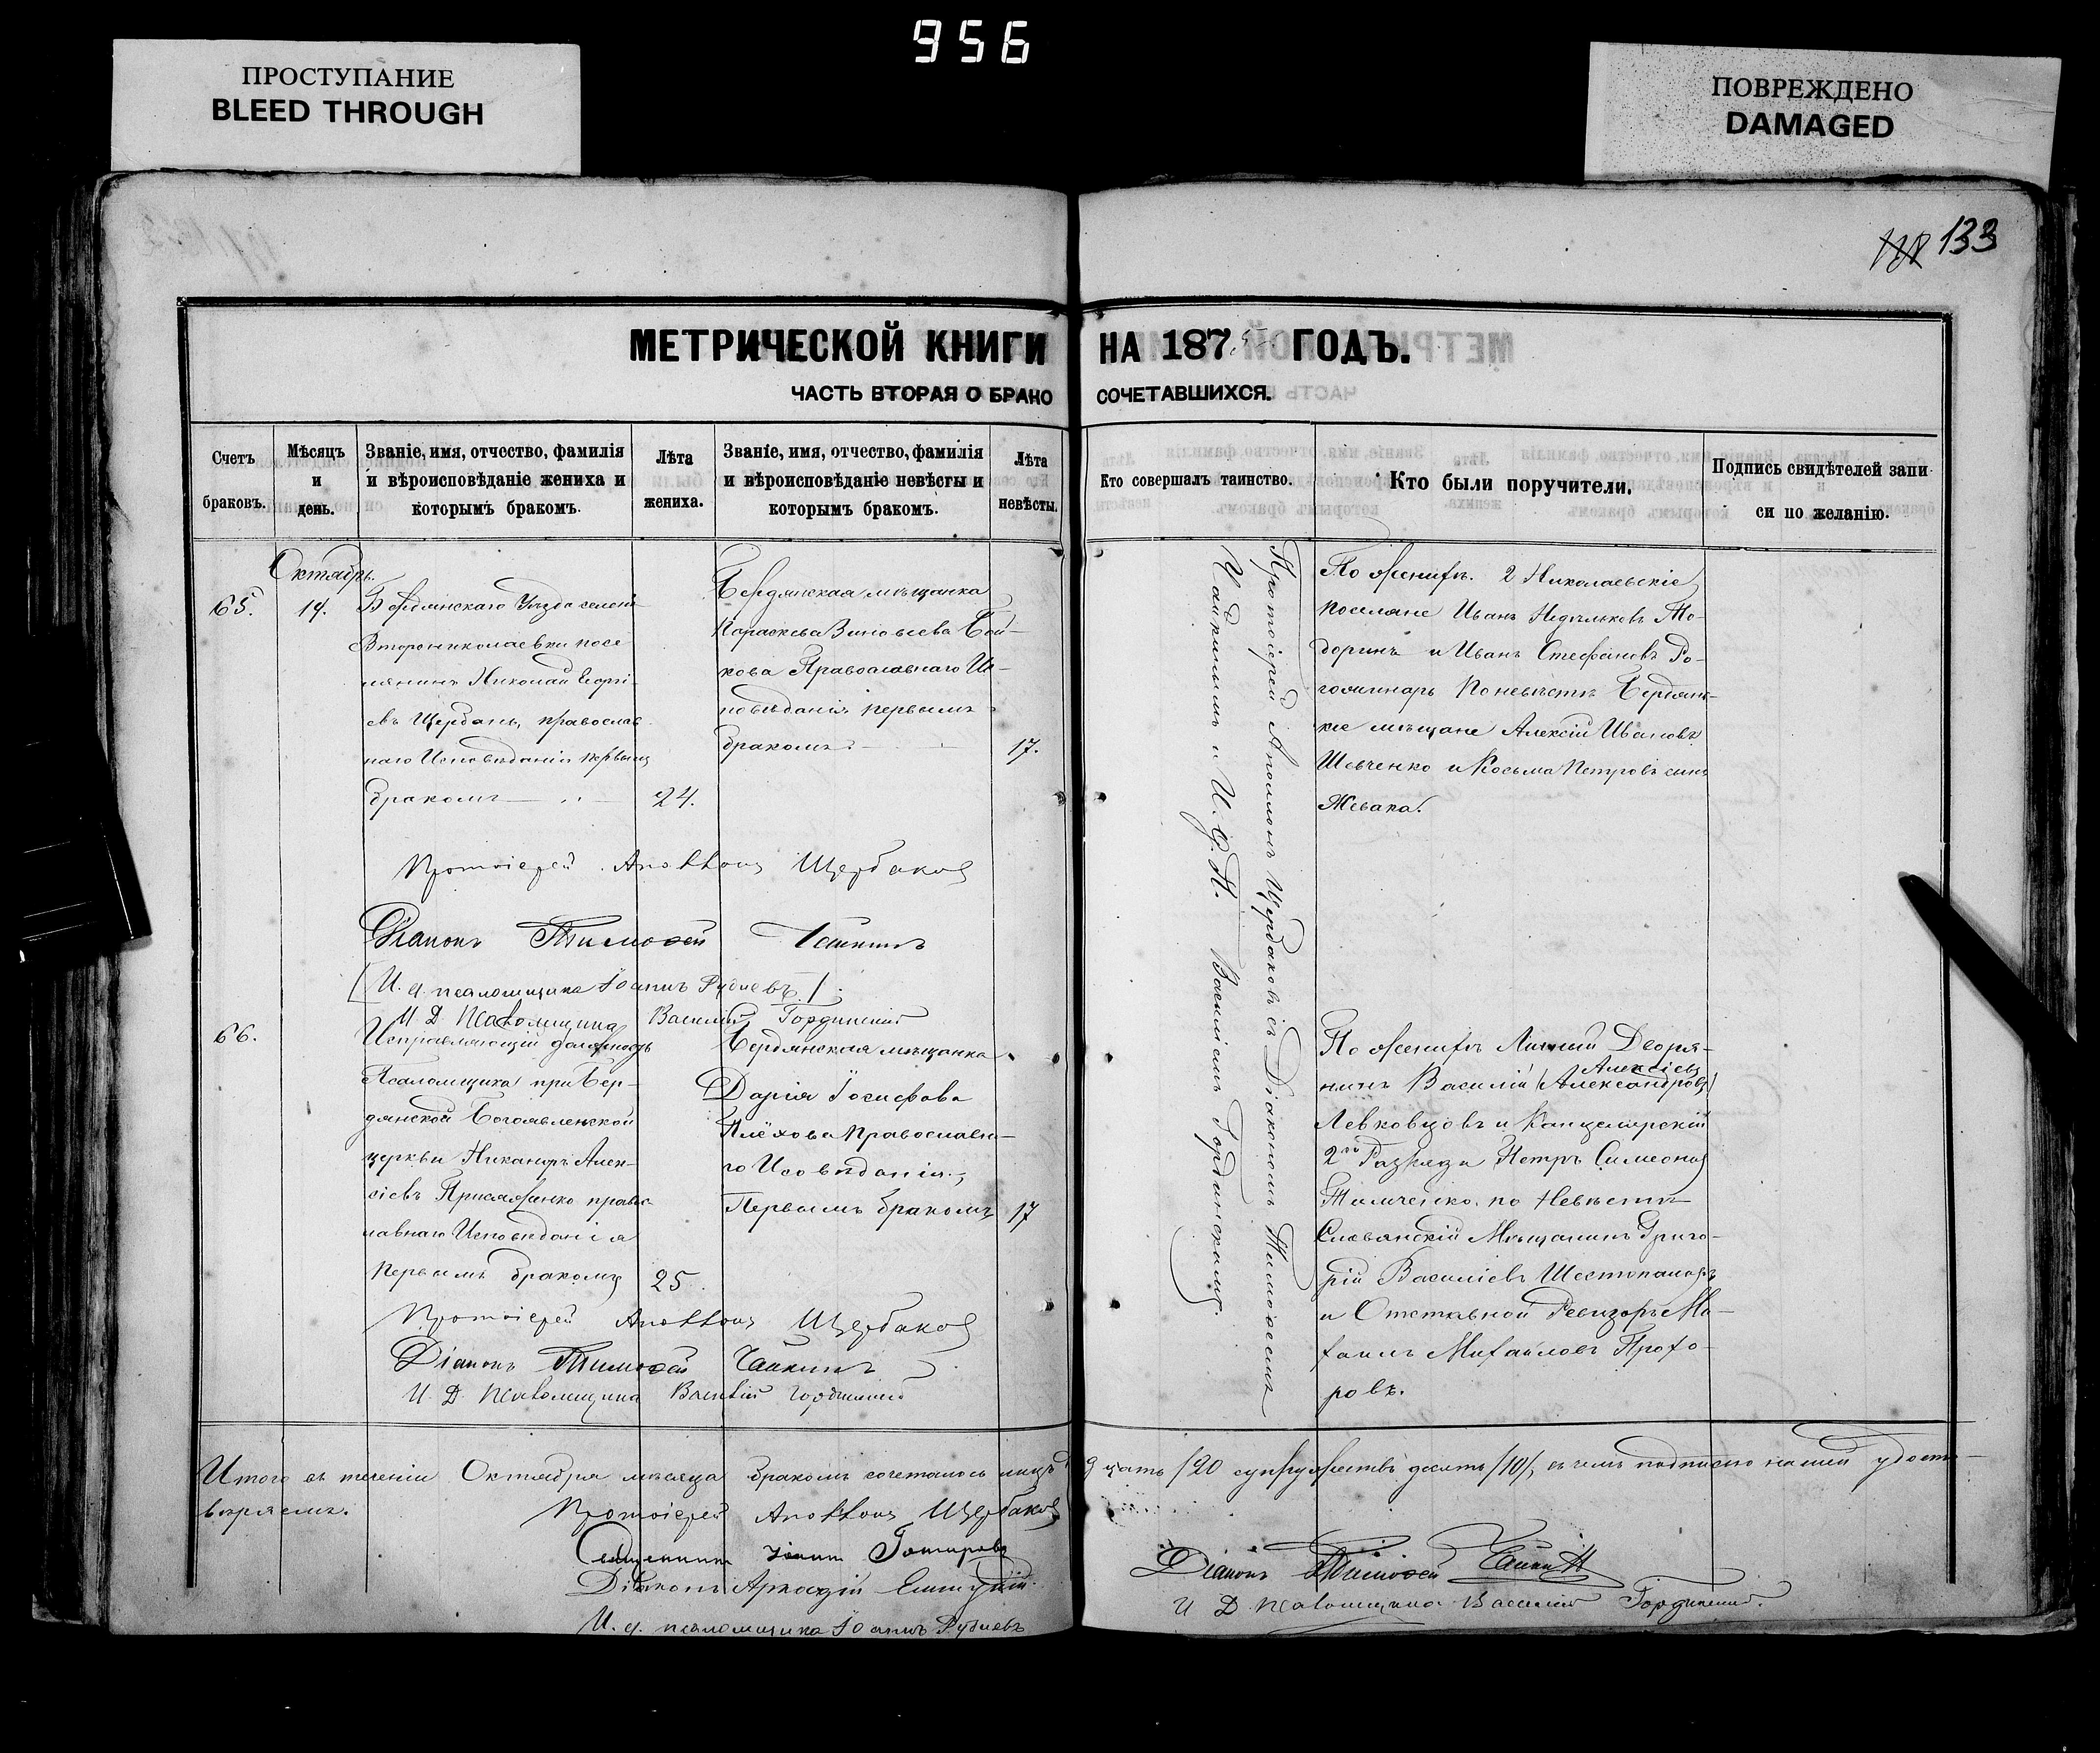 956
ПРОСТУПАНИЕ
BLEED THROUGH
ПОВРЕЖДЕНО
DAMAGED
133
МЕТРИЧЕСКОЙ КНИГИ НА 1875 ГОДЪ.
ЧАСТЬ ВТОРАЯ О БРАКО СОЧЕТАВШИХСЯ.
Счетъ браковъ.
Мѣсяцъ и день.
Званіе, имя, отчество, фамилія и вѣроисповѣданіе жениха и которымъ бракомъ.
Лѣта жениха.
Званіе, имя, отчество, фамилія и вѣроисповѣданіе невѣсты и которымъ бракомъ.
Лѣта невѣсты.
Кто совершалъ таинство.
Кто были поручители.
Подпись свидѣтелей записи по желанію.
Октябрь.
65.
14.
Бердянскаго Уѣзда селенія
Второниколаевки посе-
лянинъ Николай Георгі-
евъ Щербань, православ-
наго Исповѣданія первымъ
бракомъ
24.
Бердянская мѣщанка
Параскева Зиновьева Бой-
кова Православнаго Ис-
повѣданія первымъ
бракомъ.
17.
Протоіерей Аполлонъ Щербаковъ съ Діакономъ Тимофеемъ
Чайкинымъ и И. Д. П. Василіемъ Гординскимъ.
По женихѣ. 2 Николаевскіе
поселяне Иванъ Недѣльковъ То-
доринъ и Иванъ Стефановъ
По невѣстѣ Бердянс-
кіе мѣщане Алексій Ивановъ
Шевченко и Косьма Петровъ сынъ
Жевака.
Протоіерей Аполлонъ Щербаковъ
Діаконъ Тимофей Чайкинъ
(И. д. псаломщика Іоаннъ Рубневъ)
И. Д. Псаломщика Василій Гординскій
66.
Исправляющій должность
Псаломщика при Бер-
дянской Богоявленской
церкви Никаноръ Алек-
сіевъ православ-
лавнаго Исповѣданія
Первымъ бракомъ
25.
Бердянская мѣщанка
Дарія Іосифова
Плёхова Православна-
го Исовѣданія,
Первымъ бракомъ
17
По женихѣ Личный Дворя-
Алексіевъ
нинъ Василій (Александровъ)
Левковцовъ и Канцелярскій
2го Разряда Петръ Симеоновъ
по Невѣстѣ
Славянскій Мѣщанинъ Григо-
рій Василіевъ Шестопаловъ
и Отставной Ревизоръ Ми-
хаилъ Михайловъ Прохо-
ровъ.
Протоіерей Аполлонъ Щербаковъ
Діаконъ Тимофей Чайкинъ
И. Д. Псаломщика Василій Гординскій
Итого въ теченіи Октября мѣсяца бракомъ сочеталось лицъ дцать /20 супружествъ десять /10/, въ чемъ подписью нашей удосто-
вѣряемъ.
Протоіерей Аполлонъ Щербаковъ
Священникъ Іоаннъ
Діаконъ Аркадій
И. д. псаломщика Іоаннъ Рубневъ
Діаконъ Тимофей Чайкинъ
И Д Псаломщика Василій Гординскій.